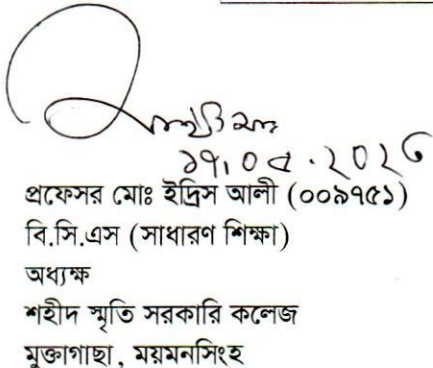 ১৭.০৫.২০২৬
প্রফেসর মোঃ ইদ্রিস আলী (০০৯৭৫১)
বি.সি.এস (সাধারণ শিক্ষা)
অধ্যক্ষ
শহীদ স্মৃতি সরকারি কলেজ
মুক্তাগাছা, ময়মনসিংহ